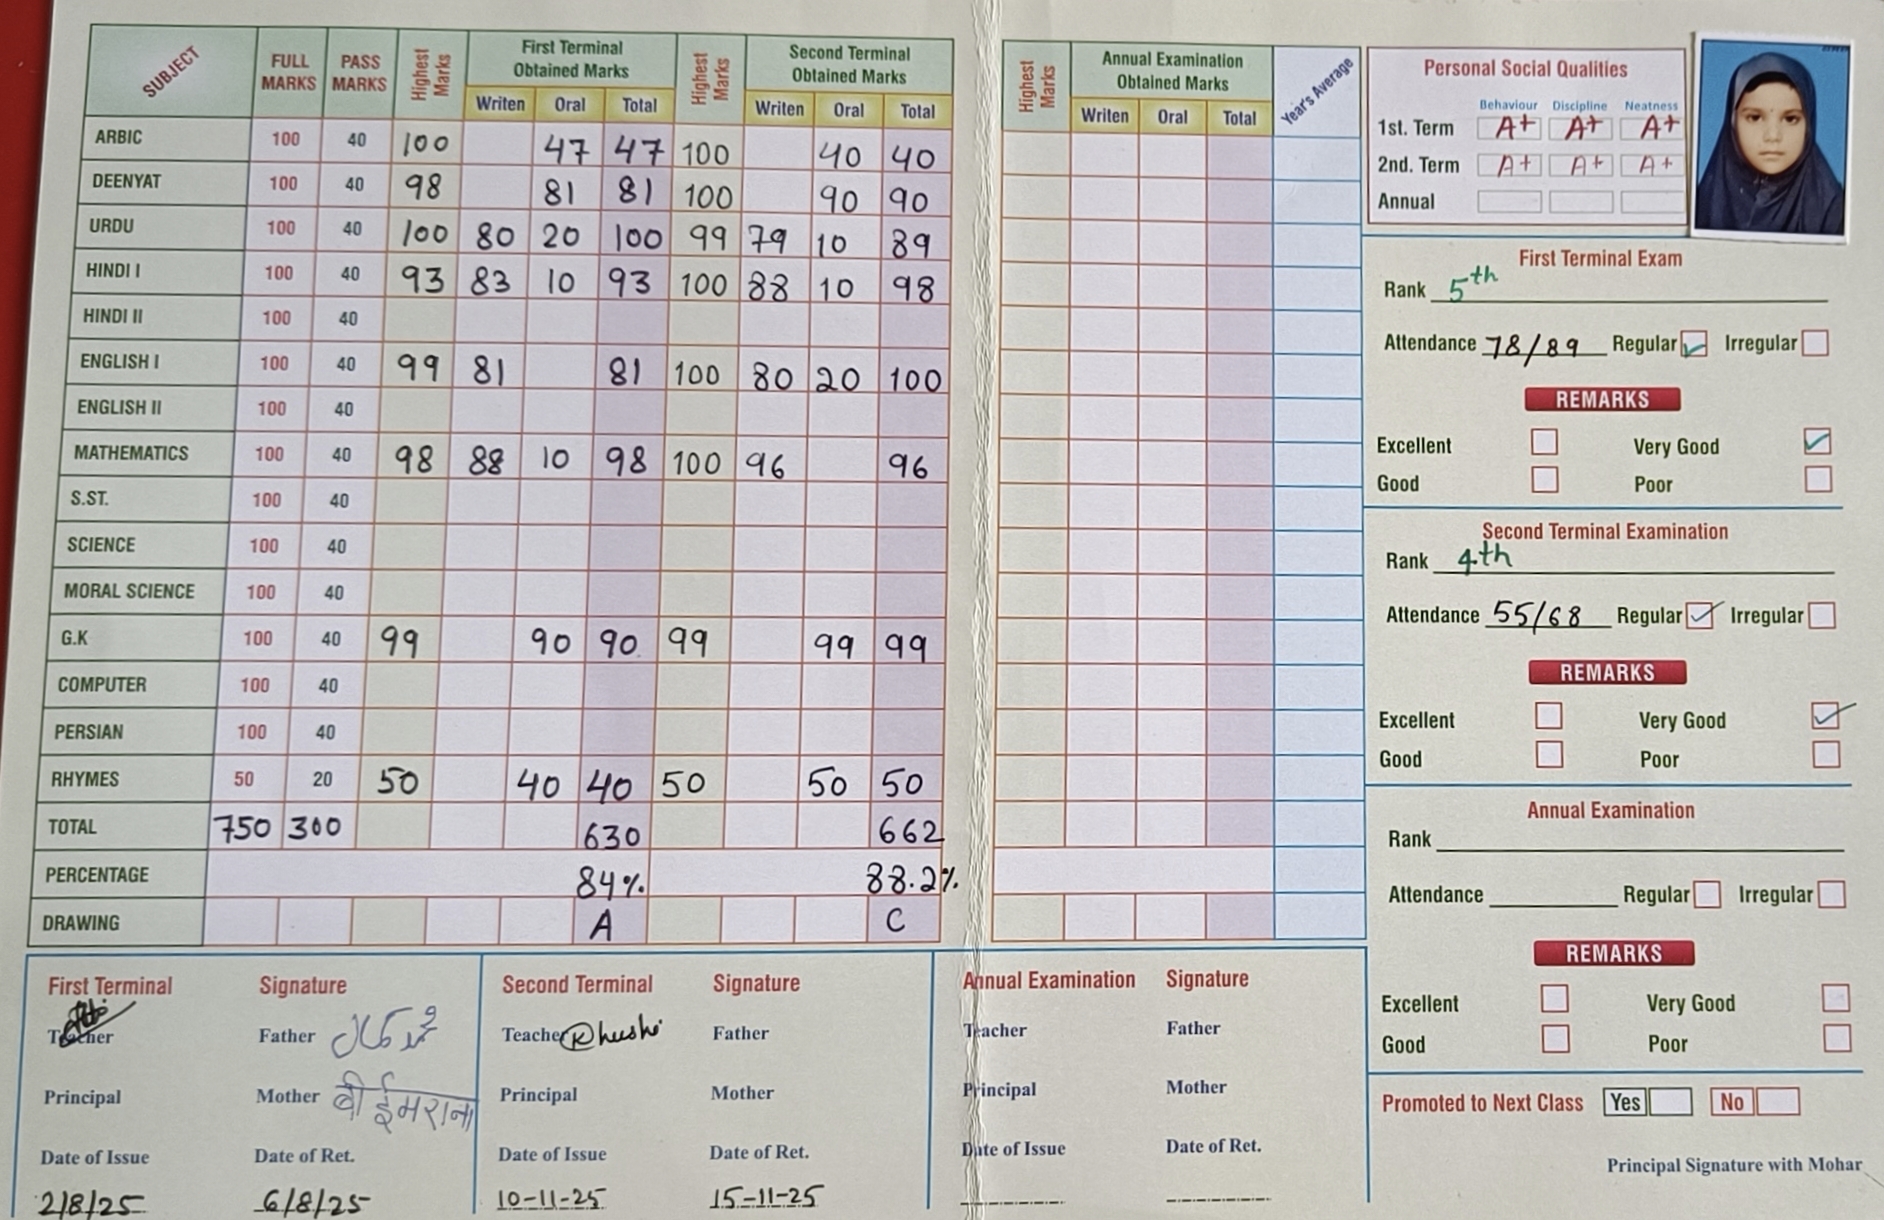 SUBJECT FULL MARKS PASS MARKS Highest Marks First Terminal Obtained Marks Highest Marks Second Terminal Obtained Marks
Writen Oral Total Writen Oral Total
ARBIC 100 40 100 47 47 100 40 40
DEENYAT 100 40 98 81 81 100 90 90
URDU 100 40 100 80 20 100 99 79 10 89
HINDI I 100 40 93 83 10 93 100 88 10 98
HINDI II 100 40
ENGLISH I 100 40 99 81 81 100 80 20 100
ENGLISH II 100 40
MATHEMATICS 100 40 98 88 10 98 100 96 96
S.ST. 100 40
SCIENCE 100 40
MORAL SCIENCE 100 40
G.K 100 40 99 90 90 99 99 99
COMPUTER 100 40
PERSIAN 100 40
RHYMES 50 20 50 40 40 50 50 50
TOTAL 750 300 630 662
PERCENTAGE 84% 88.2%
DRAWING A C
Highest Marks Annual Examination Obtained Marks Year's Average
Writen Oral Total
Personal Social Qualities
Behaviour Discipline Neatness
1st. Term A+ A+ A+
2nd. Term A+ A+ A+
Annual
First Terminal Exam
Rank 5th
Attendance 78/89 Regular Irregular
REMARKS
Excellent Very Good
Good Poor
Second Terminal Examination
Rank 4th
Attendance 55/68 Regular Irregular
REMARKS
Excellent Very Good
Good Poor
Annual Examination
Rank
Attendance Regular Irregular
REMARKS
Excellent Very Good
Good Poor
Promoted to Next Class Yes No
Principal Signature with Mohar
First Terminal Signature
Teacher Father
Principal Mother बी ईमराना
Date of Issue Date of Ret.
2/8/25 6/8/25
Second Terminal Signature
Teacher Khushi Father
Principal Mother
Date of Issue Date of Ret.
10-11-25 15-11-25
Annual Examination Signature
Teacher Father
Principal Mother
Date of Issue Date of Ret.